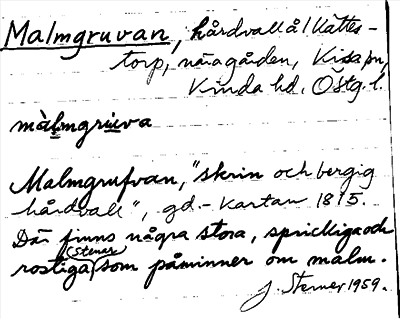 Malmgruvan, hårdvall å l Kättes-
torp, nära gården, Kisa sn,
Kinda hd. Östg. l.
màlmgrùva
Malmgrufvan, "skrin och bergig
hårdvall", gd.-kartan 1815.
Där finns några stora, sprickiga och
rostiga (stenar) som påminner om malm.
J. Sterner 1959.